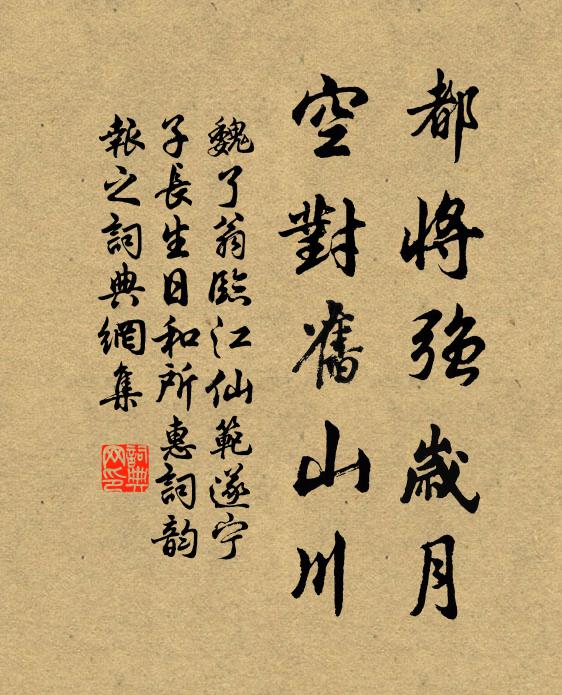 都將強歲月
空對舊山川
魏了翁臨江仙範遂宁
子長生日和所惠詞韵
報之詞典網集
詞典
网印